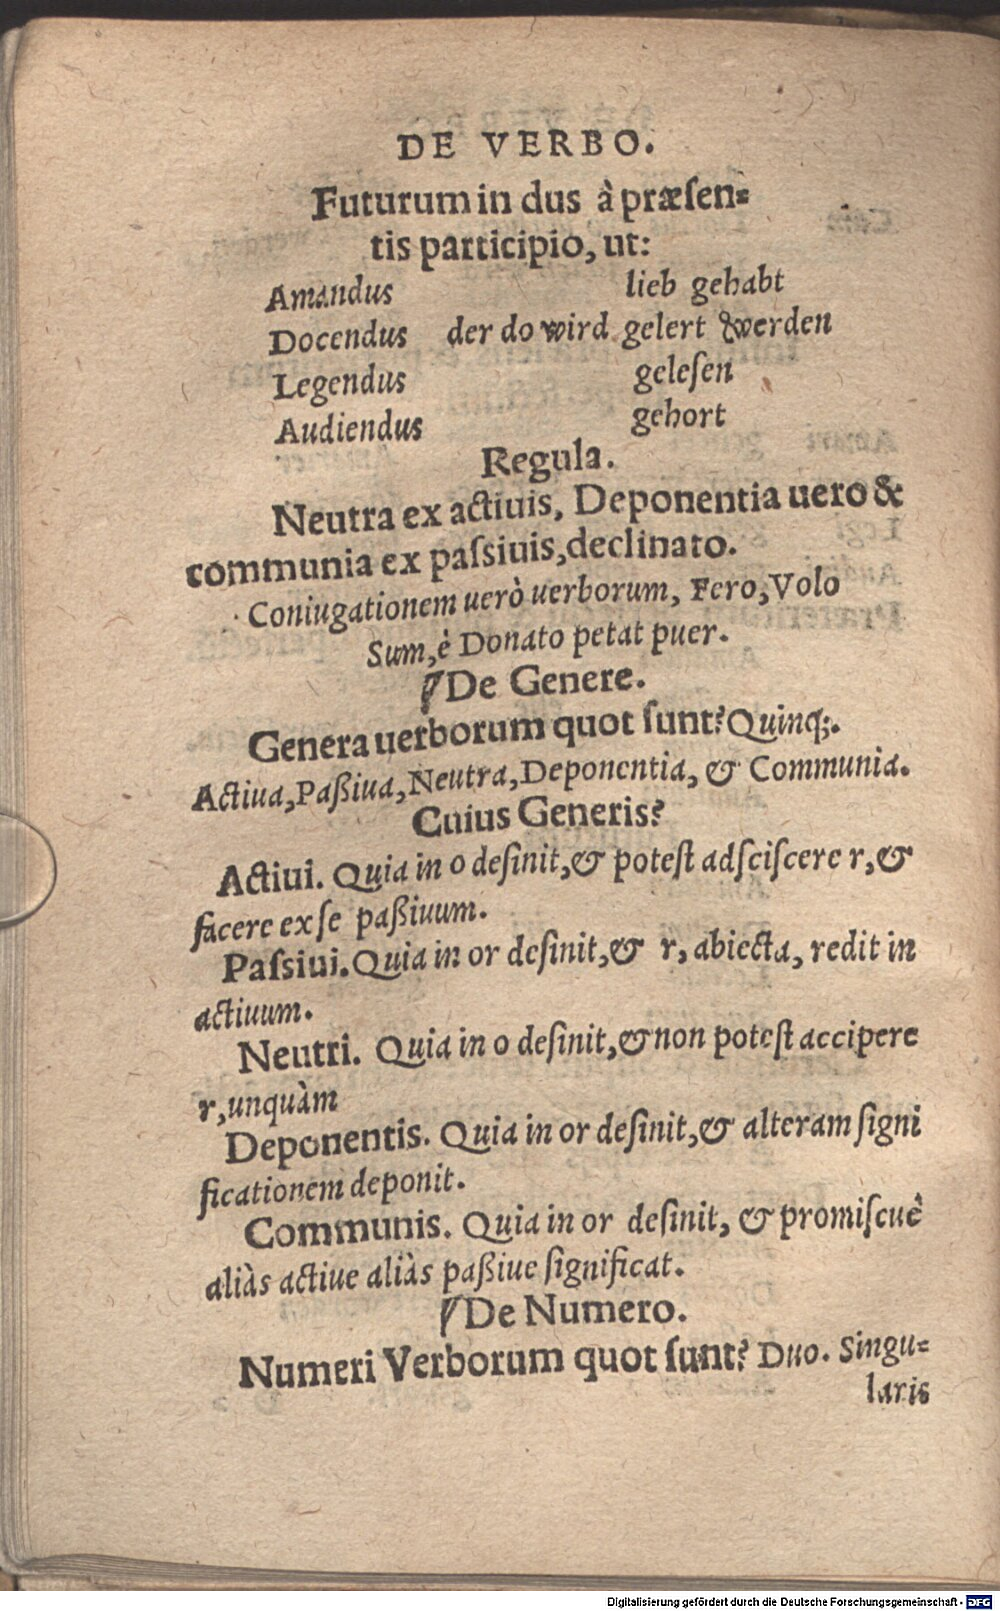 DE VERBO.
Futurum in dus à præſen⸗
tis participio, ut:
Amandus lieb gehabt
Docendus der do wird gelert werden
Legendus geleſen
Audiendus gehort
Regula.
Neutra ex actiuis, Deponentia uero &
communia ex paſsiuis, declinato.
Coniugationem uerò uerborum, Fero, Volo
Sum, è Donato petat puer.
De Genere.
Genera uerborum quot ſunt? Quinq;.
Actiua, Paßiua, Neutra, Deponentia, & Communia.
Cuius Generis?
Actiui. Quia in o deſinit, & poteſt adſciſcere r, &
facere ex ſe paßiuum.
Paſsiui. Quia in or deſinit, & r, abiecta, redit in
actiuum.
Neutri. Quia in o deſinit, & non poteſt accipere
r, unquàm
Deponentis. Quia in or deſinit, & alteram ſigni
ficationem deponit.
Communis. Quia in or deſinit, & promiſcuè
aliàs actiue aliàs paßiue ſignificat.
De Numero.
Numeri Verborum quot ſunt? Duo. Singu⸗
laris
Digitalisierung gefördert durch die Deutsche Forschungsgemeinschaft - DFG